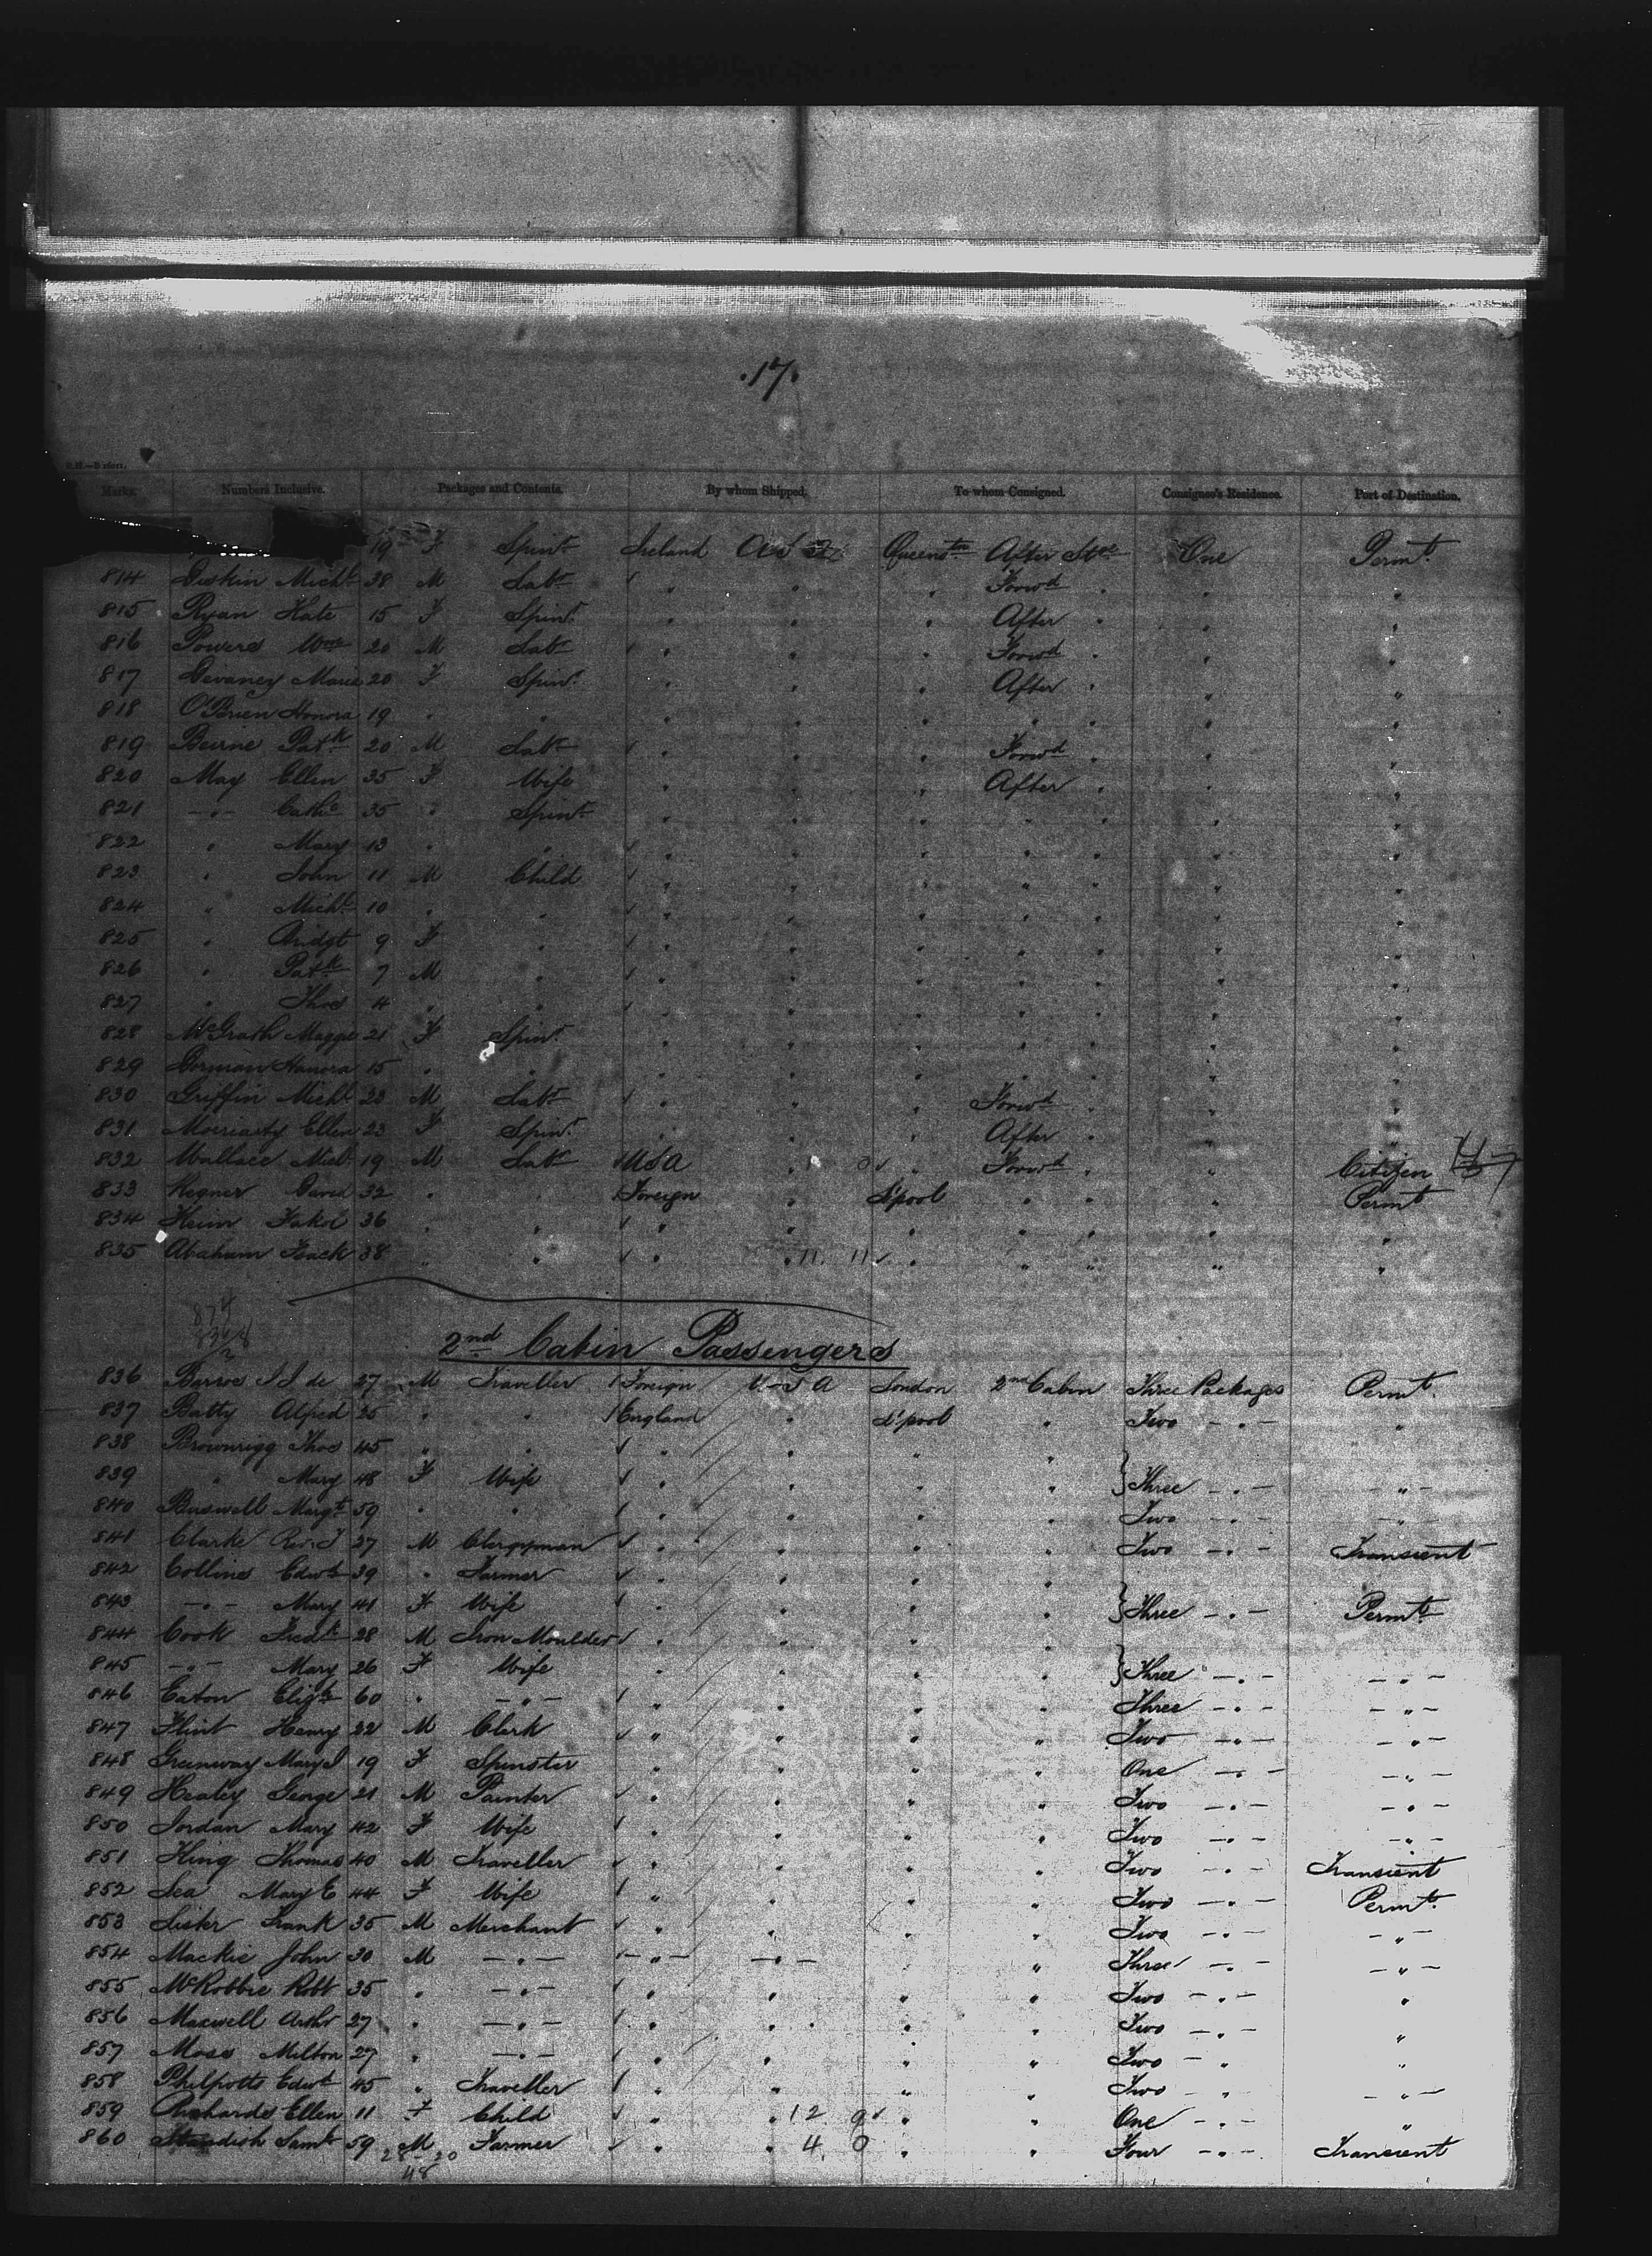 .17.
Marks. Numbers Inclusive. Packages and Contents. By whom Shipped. To whom Consigned. Consignee's Residence. Port of Destination.
19 F Spinr Ireland Queenstn After Stge One Permt.
814 Michl 38 M Labr " " " Forwd " " "
815 Ryan Kate 15 F Spinr " " " After " " "
816 Powers Wm 20 M Labr " " " Forwd " " "
817 Devaney Marie 20 F Spinr " " " After " " "
818 O'Brien Honora 19 " " " " " " " " "
819 Beirne Patk 20 M Labr " " " Forwd " " "
820 May Ellen 35 F Wife " " " After " " "
821 -"- Cathe 35 " Spinr " " " " " " "
822 " Mary 13 " " " " " " " " "
823 " John 11 M Child " " " " " " "
824 " Michl 10 " " " " " " " " "
825 " Bridgt 9 F " " " " " " " "
826 " Patk 7 M " " " " " " " "
827 " Thos 4 " " " " " " " " "
828 McGrath Maggie 21 F Spinr " " " " " " "
829 Gorman Hanora 15 " " " " " " " " "
830 Griffin Michl 23 M Labr " " " Forwd " " "
831 Moriarty Ellen 23 F Spinr " " " After " " "
832 Wallace Michl 19 M Labr USA " " Forwd " " Citizen
833 Regner David 32 " " Foreign " L'pool " " " Permt
834 Heim Jakob 36 " " " " " " " " "
835 Abaham Isack 38 " " " " 11 11 " " " " "
2nd Cabin Passengers
836 Barros de 27 M Traveller Foreign U-S A London 2nd Cabin Three Packages Permt.
837 Batty Alfred 25 " " England " L'pool " Two -"- "
838 Brownrigg Thos 45 " " " " " "
839 " Mary 48 F Wife " " " " } Three -"- -"-
840 Burswell Margt 59 " " " " " " Two -"- -"-
841 Clarke Rev. J 27 M Clergyman " " " " Two -"- Transient
842 Collins Edwd 39 " Farmer " " " "
843 -"- Mary 41 F Wife " " " " } Three -"- Permt
844 Cook Fredk 28 M Iron Moulder " " " "
845 -"- Mary 26 F Wife " " " " } Three -"- -"-
846 Eaton Elizth 60 " -"- " " " " Three -"- -"-
847 Flint Henry 22 M Clerk " " " " Two -"- -"-
848 Greenway Mary J 19 F Spinster " " " " One -"- -"-
849 Healey George 21 M Painter " " " " Two -"- -"-
850 Jordan Mary 42 F Wife " " " " Two -"- -"-
851 King Thomas 40 M Traveller " " " " Two -"- Transient
852 Lea Mary E 44 F Wife " " " " Two -"- Permt.
853 Lister Frank 35 M Merchant " " " " Two -"- -"-
854 Mackie John 30 M -"- -"- -"- " Three -"- -"-
855 McRobbie Robt 35 " -"- " " " " Two -"- "
856 Maxwell Arthr 27 " -"- " " " " Two -"- "
857 Moses Milton 27 " -"- " " " " Two - " "
858 Philpotts Edwd 45 " Traveller " " " " Two - " -"-
859 Richards Ellen 11 F Child " " 12 9 " " One -"- "
860 Standish Saml 59 M Farmer " " 4 0 " " Four -"- Transient
28 - 20
48